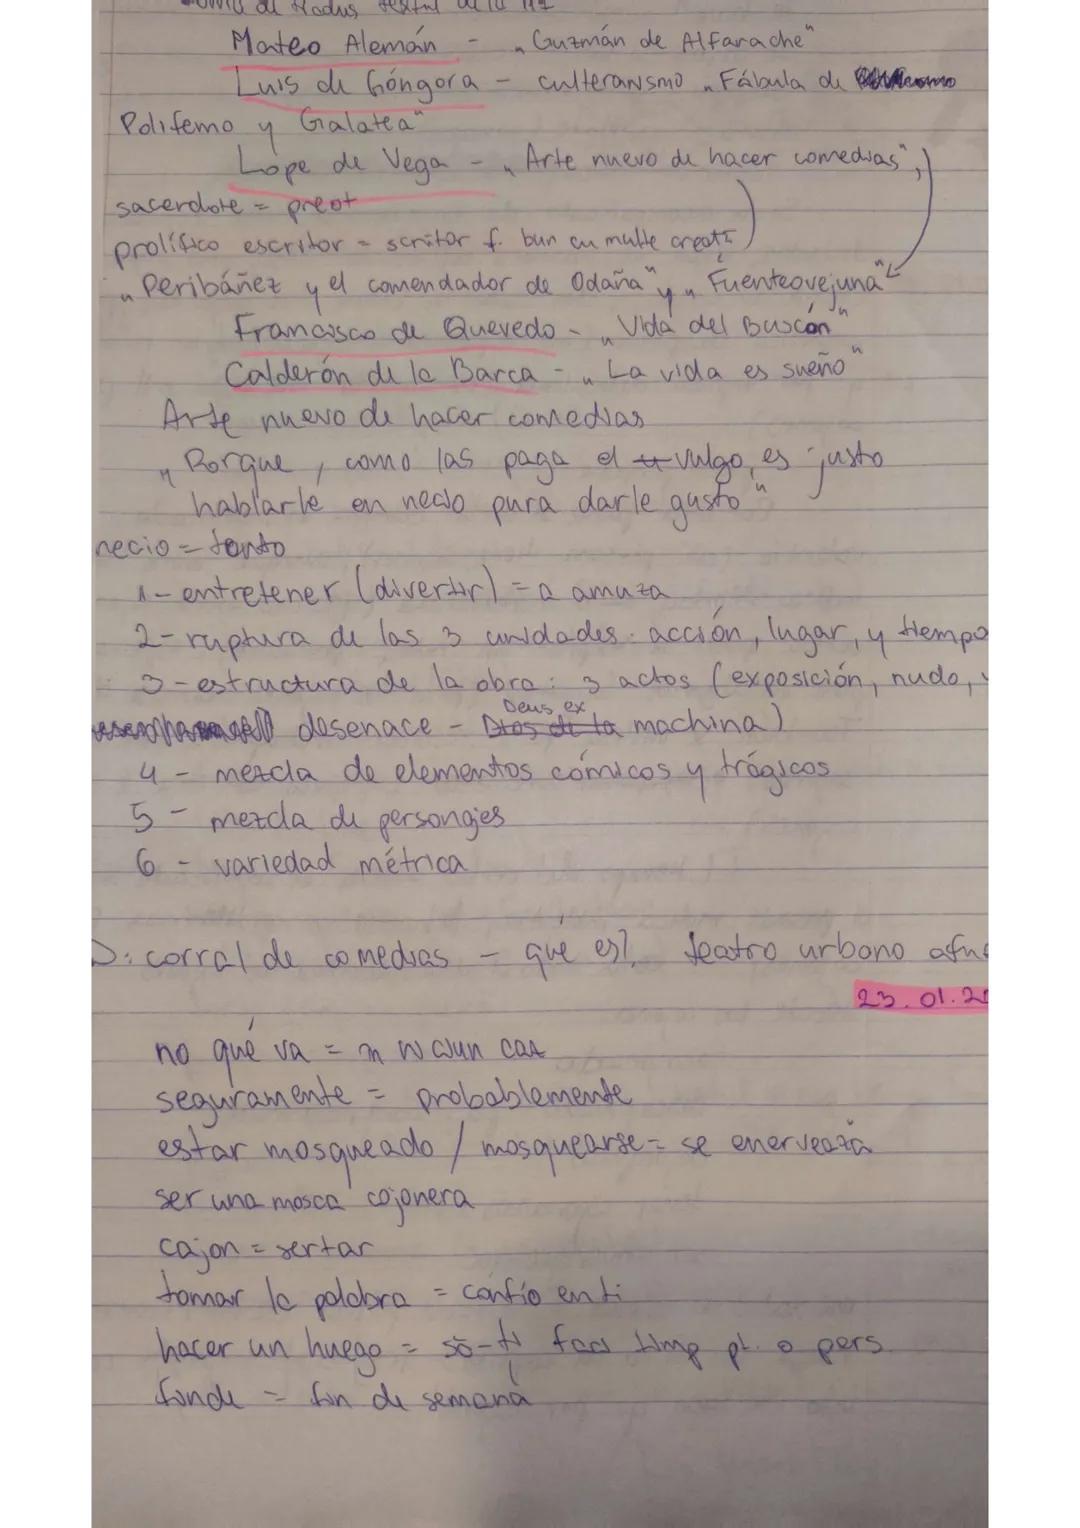 Mateo Alemán - „Guzmán de Alfarache"
Luis de Góngora - culteranismo „Fábula de
Polifemo y Galatea"
Lope de Vega - „Arte nuevo de hacer comedias",
sacerdote = preot
prolífico escritor = scriitor f. bun cu multe creații
„Peribáñez y el comendador de Odaña" y „Fuenteovejuna"
Francisco de Quevedo - „Vida del Buscón"
Calderón de la Barca - „La vida es sueño"
Arte nuevo de hacer comedias
„Porque, como las paga el vulgo, es justo
hablarle en necio para darle gusto"
necio = tonto
1- entretener (divertir) = a amuza
2- ruptura de las 3 unidades: acción, lugar, y tiempo
3- estructura de la obra: 3 actos (exposición, nudo, y
desenace - Deus ex machina)
4 - mezcla de elementos cómicos y trágicos
5 - mezcla de personajes
6 - variedad métrica
D: corral de comedias - qué es? teatro urbano
23.01.20
no qué va = în niciun caz
seguramente = probablemente
estar mosqueado / mosquearse = se enervează
ser una mosca cojonera
cajon = sertar
tomar la palabra = confío en ti
hacer un huego = să-ți faci timp pt. o pers.
finde = fin de semana